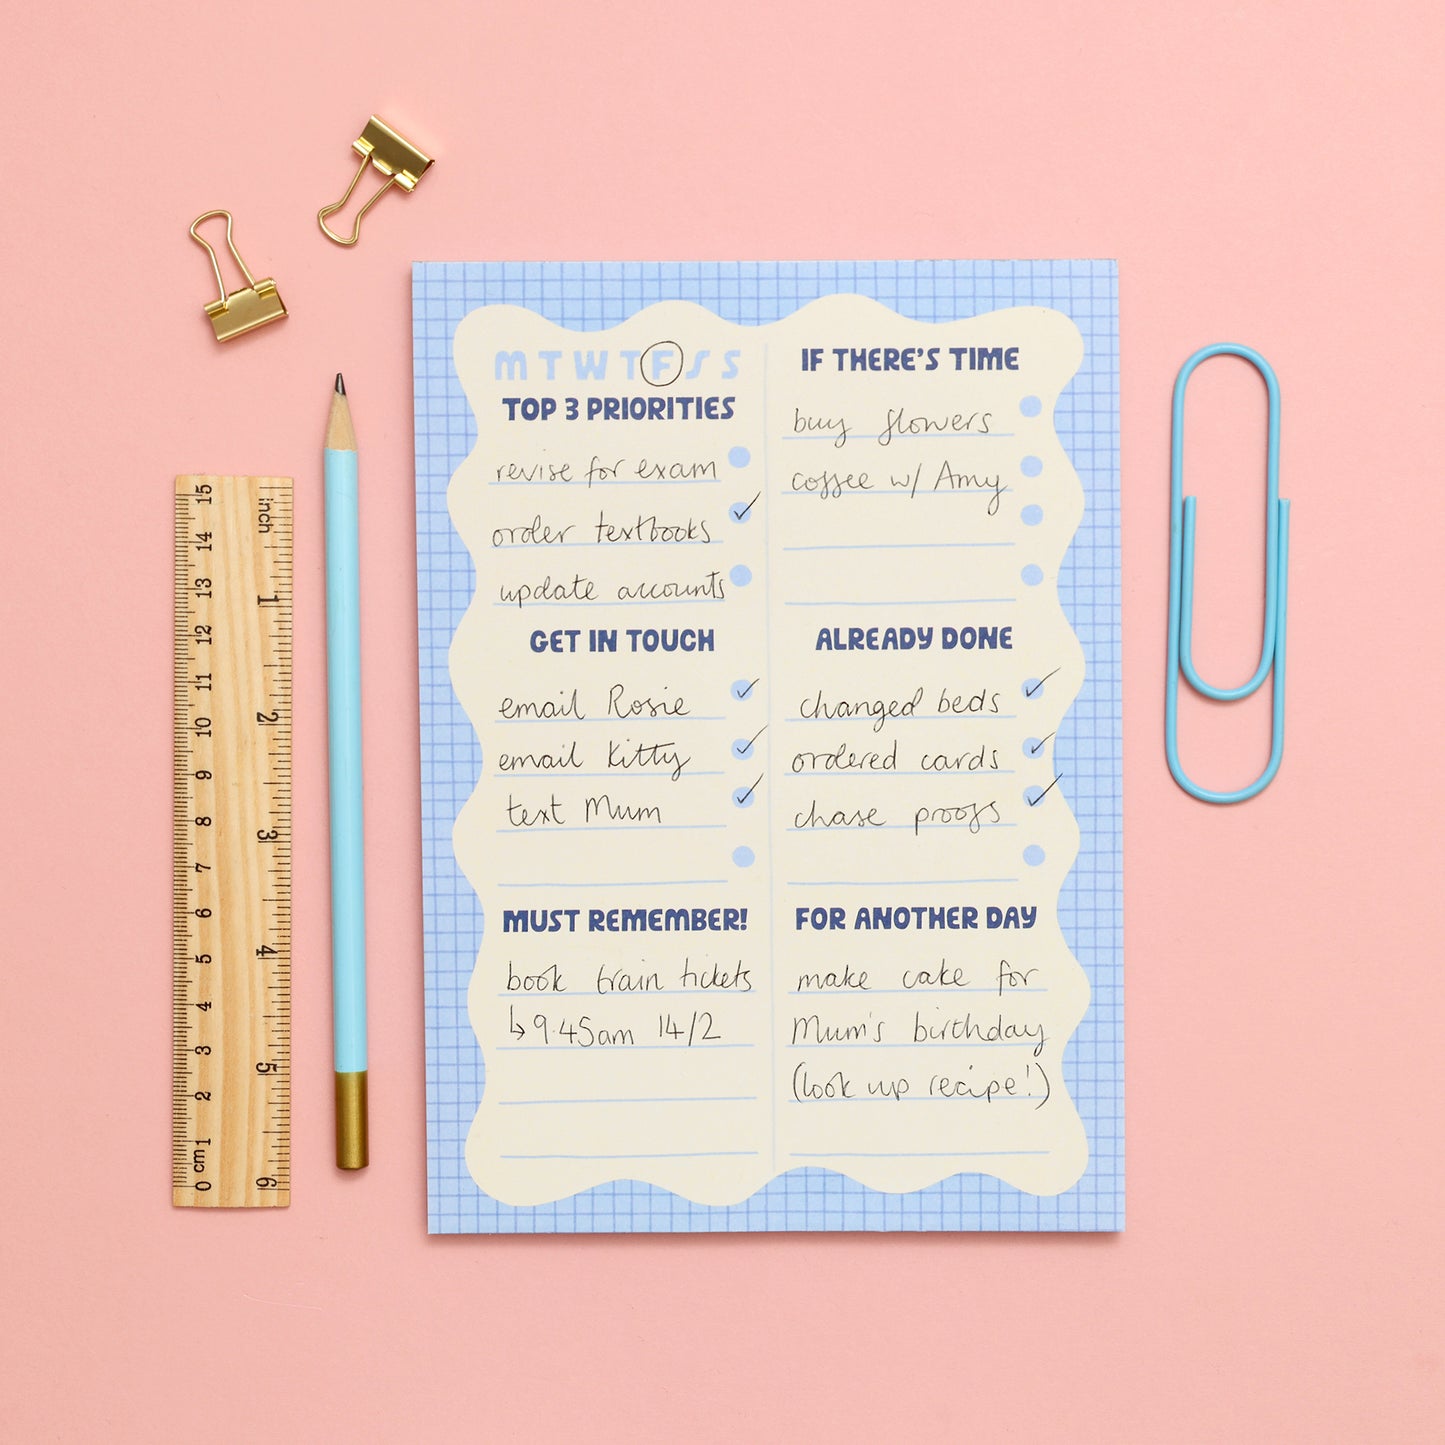 M T W T F S S
TOP 3 PRIORITIES
revise for exam
order textbooks
update accounts
GET IN TOUCH
email Rosie
email Kitty
text Mum
MUST REMEMBER!
book train tickets
↳ 9.45am 14/2
IF THERE'S TIME
buy flowers
coffee w/ Amy
ALREADY DONE
changed beds
ordered cards
chase proofs
FOR ANOTHER DAY
make cake for
Mum's birthday
(look up recipe!)
15 14 13 12 11 10 9 8 7 6 5 4 3 2 1 0 cm
inch 1 2 3 4 5 6